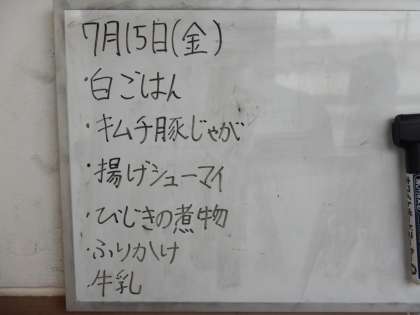 7月15日(金)
・白ごはん
・キムチ豚じゃが
・揚げシューマイ
・ひじきの煮物
・ふりかけ
・牛乳